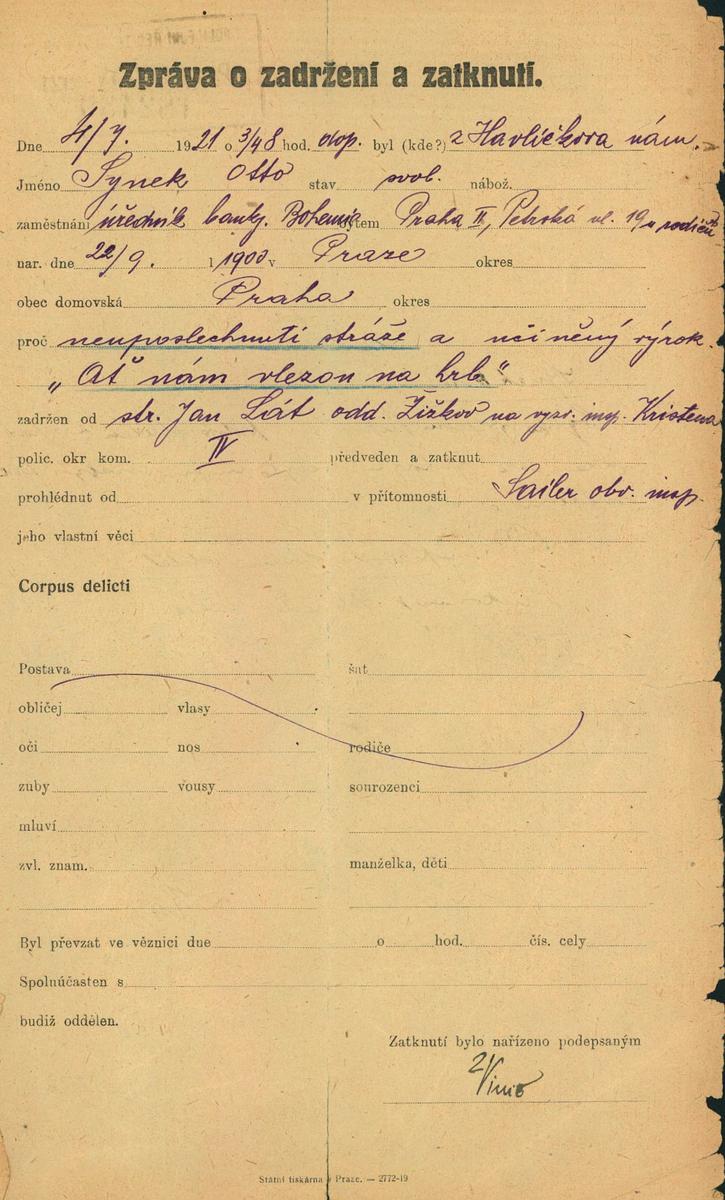 Zpráva o zadržení a zatknutí.
Dne 4/7. 1921 o 3/48 hod. dop. byl (kde?) z Havlíčkova nám.
Jméno Synek Otto stav svob. nábož.
zaměstnání úředník banky. Bohemia bytem Praha II, Petrská ul. 19 u rodičů
nar. dne 22/9. 1900 v Praze okres
obec domovská Praha okres
proč neuposlechnutí stráže a učiněný výrok.
„Ať nám vlezou na hrb“
zadržen od str. Jan Lát odd. Žižkov na vyzv. insp. Kristena
polic. okr kom. IV předveden a zatknut
prohlédnut od v přítomnosti Sailer obv. insp.
jeho vlastní věci
Corpus delicti
Postava šat
obličej vlasy
oči nos rodiče
zuby vousy sourozenci
mluví
zvl. znam. manželka, děti
Byl převzat ve věznici dne o hod. čís. cely
Spoluúčasten s
budiž oddělen.
Zatknutí bylo nařízeno podepsaným
Státní tiskárna v Praze. — 2772-19